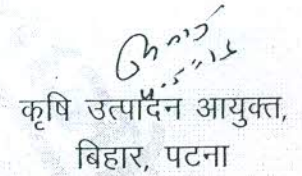 कृषि उत्पादन आयुक्त,
बिहार, पटना